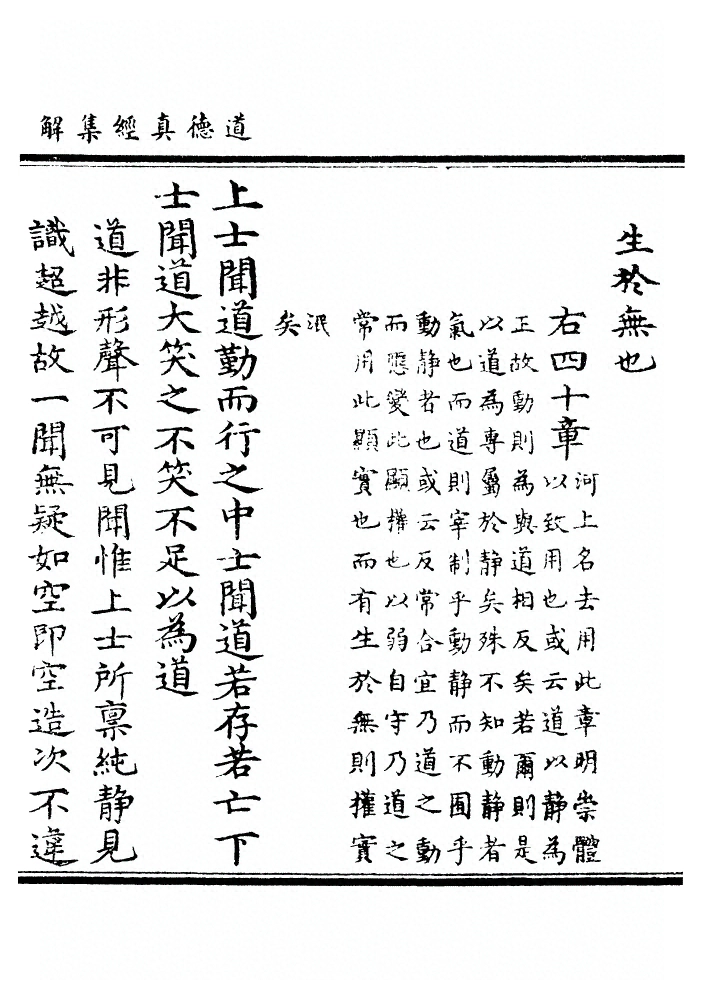 道德真經集解
生於無也
右四十章
河上名去用此章明崇體
以致用也或云道以静為
正故動則為與道相反矣若爾則是
以道為專屬於静矣殊不知動静者
氣也而道則宰制乎動静而不囿乎
動静者也或云反常合宜乃道之動
而應變此顯權也以弱自守乃道之
常用此顯實也而有生於無則權實
泯
矣
上士聞道勤而行之中士聞道若存若亡下
士聞道大笑之不笑不足以為道
道非形聲不可見聞惟上士所禀純静見
識超越故一聞無疑如空即空造次不違